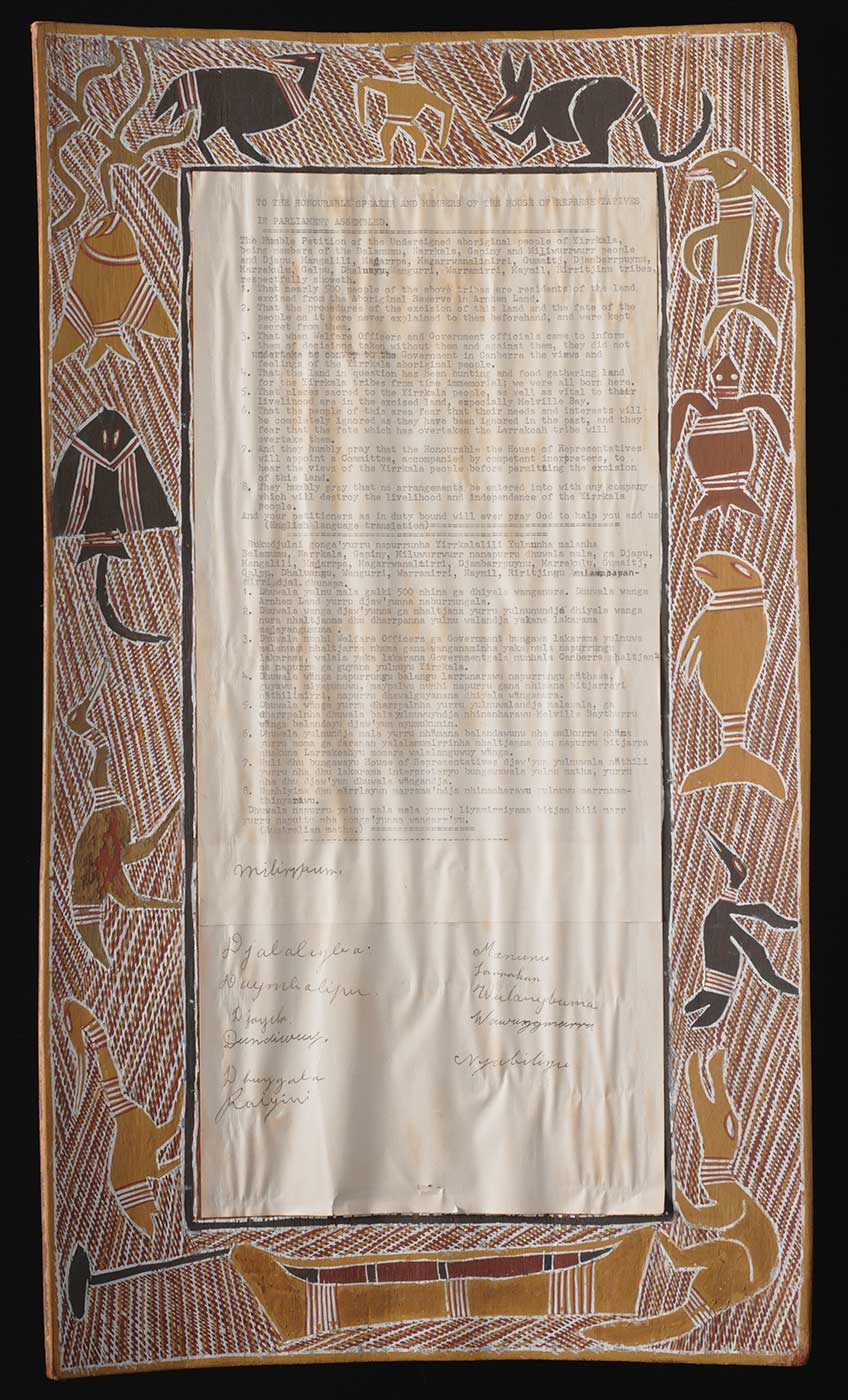 TO THE HONOURABLE SPEAKER AND MEMBERS OF THE HOUSE OF REPRESENTATIVES
IN PARLIAMENT ASSEMBLED.
The Humble Petition of the Undersigned aboriginal people of Yirrkala,
being members of the Balamumu, Narrkala, Gapiny and Miliwurrwurr people
and Djapu, Mangalili, Madarrpa, Magarrwanalinirri, Gumaitj, Djambarrpuynu,
Marrakulu, Galpu, Dhaluayu, Wangurri, Warramirri, Maymil, Rirritjinu tribes,
respectfully sheweth.
1. That nearly 500 people of the above tribes are residents of the land
excised from the Aboriginal Reserve in Arnhem Land.
2. That the procedures of the excision of this land and the fate of the
people on it were never explained to them beforehand, and were kept
secret from them.
3. That when Welfare Officers and Government officials came to inform
them of decisions taken without them and against them, they did not
undertake to convey to the Government in Canberra the views and
feelings of the Yirrkala aboriginal people.
4. That the land in question has been hunting and food gathering land
for the Yirrkala tribes from time immemorial; we were all born here.
5. That places sacred to the Yirrkala people, as well as vital to their
livelihood are in the excised land, especially Melville Bay.
6. That the people of this area fear that their needs and interests will
be completely ignored as they have been ignored in the past, and they
fear that the fate which has overtaken the Larrakeah tribe will
overtake them.
7. And they humbly pray that the Honourable the House of Representatives
will appoint a Committee, accompanied by competent interpreters, to
hear the views of the Yirrkala people before permitting the excision
of this land.
8. They humbly pray that no arrangements be entered into with any company
which will destroy the livelihood and independence of the Yirrkala
people.
And your petitioners as in duty bound will ever pray God to help you and us
(English language translation)
Bukudjulni gonga'yurru napurrunha Yirrkalalili Yulnunha malanha
Balamumu, Narrkala, Gapiny, Miliwurrwurr nanapurru dhuwala mala, ga Djapu,
Mangalili, Madarrpa, Magarrwanalinirri, Djambarrpuynu, Marrakulu, Gumaitj,
Galpu, Dhaluangu, Wangurri, Warramirri, Naymil, Riritjingu
djal dhunapa.
1. Dhuwala yulnu mala galki 500 nhina ga dhiyala wanganura. Dhuwala wanga
Arnhem Land yurru djaw'yunna naburrungala.
2. Dhuwala wanga djaw'yunna ga nhaltjana yurru yulnunundja dhiyala wanga
nura nhaltjanna dhu dharrpanna yulnu walandja yakana lakarama
madayangumuna.
3. Dhuwala nunhi Welfare Officers ga Government bungawa lakarama yulnuwa
malanuwa nhaltjarra nhuma gana wanganaminha yaka nuli napurrungu
lakarama, walala yaka lakarama Governmentgala nunhala Canberra nhaltjan
napurru ga guyana yulnuyu Yirrkala.
4. Dhuwala wanga napurrungu balanu larrunarawu napurrungu nathawa,
guyawu, miyapunuwu, maypalwu nunhi napurru gana nhinana bitjarrayi
nathilimirri, napurru dhawalguyanana dhiyala wanganura.
5. Dhuwala wanga yurru dharrpalnha yurru yulnuwalandja malawala, ga
dharrpalnha dhuwala bala yulnuwuyndja nhinanharawu Melville Baythurru
wanga balandayu djaw'yun nyumunin.
6. Dhuwala yulnundja mala yurru nhamana balandawunu nha mulkurru nhama
yurru moma ga daranan yalalanumirrinha nhaltjanna dhu napurru bitjarra
nhakuna Larrakeahyu momara walalanguwuy wanga.
7. Nuli dhu bungawayu House of Representatives djaw'yun yulnuwala nathili
yurru nha dhu lakarama interpreteryu bungawawala yulnu matha, yurru
nha dhu djaw'yun dhuwala wangandja.
8. Nunhiyina dhu marrlayun marrama'ndja nhinanharawu yulnuwu marrnama-
thinyarawu.
Dhuwala napurru yulnu mala mala yurru liyamirriyama bitjan bili marr
yurru napurru nha gonga'yunna wangarr'yu.
(Australian matha.)
Milirrpum.
Djalalingba.
Daymbalipu.
Djayila.
Dundiwuy.
Dhuygala
Raiyini
Manunu
Larrakan
Wulanybuma
Wawunymarra
Nyabilingu